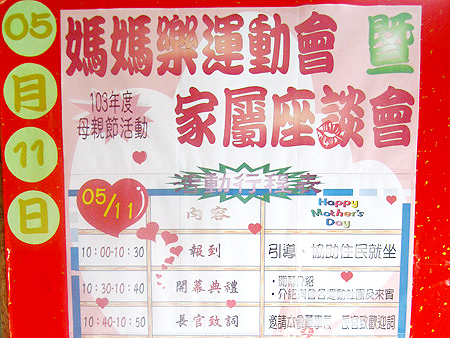 05
月
11
日
媽媽樂運動會 暨
家屬座談會
103年度
母親節活動
活動行程表
05/11
內容
Happy
Mother's
Day
10:00-10:30 報到 引導、協助住民就坐
10:30-10:40 開幕典禮 ・開幕介紹
・介紹與會各運動社團及來賓
10:40-10:50 長官致詞 邀請本會董事長、長官致歡迎詞